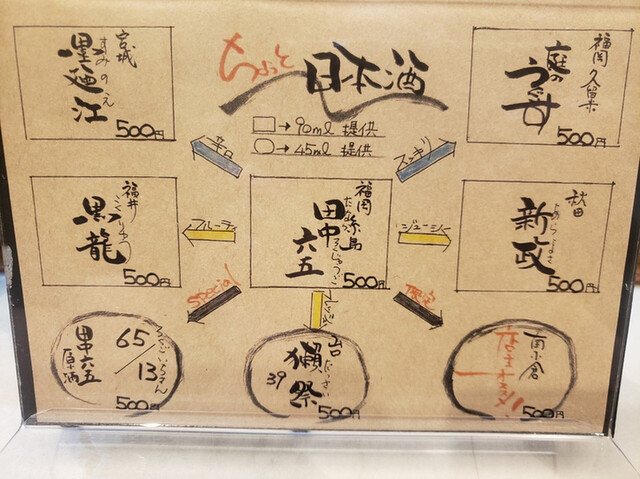 ちょっと 日本酒
□→90ml 提供
○→45ml 提供
宮城
すみのえ
墨廼江
500円
福岡 久留米
庭のうぐいす
500円
辛口
スッキリ
福井
こくりゅう
黒龍
500円
フルーティ
福岡 糸島
たなか
ろくじゅうご
田中六五
500円
ジューシー
秋田
あらまさ
新政
500円
Special
限定
65/13
ろくごいちさん
田中六五
原酒
500円
山口
だっさい
獺祭
39
500円
南小倉
店主オススメ!
500円